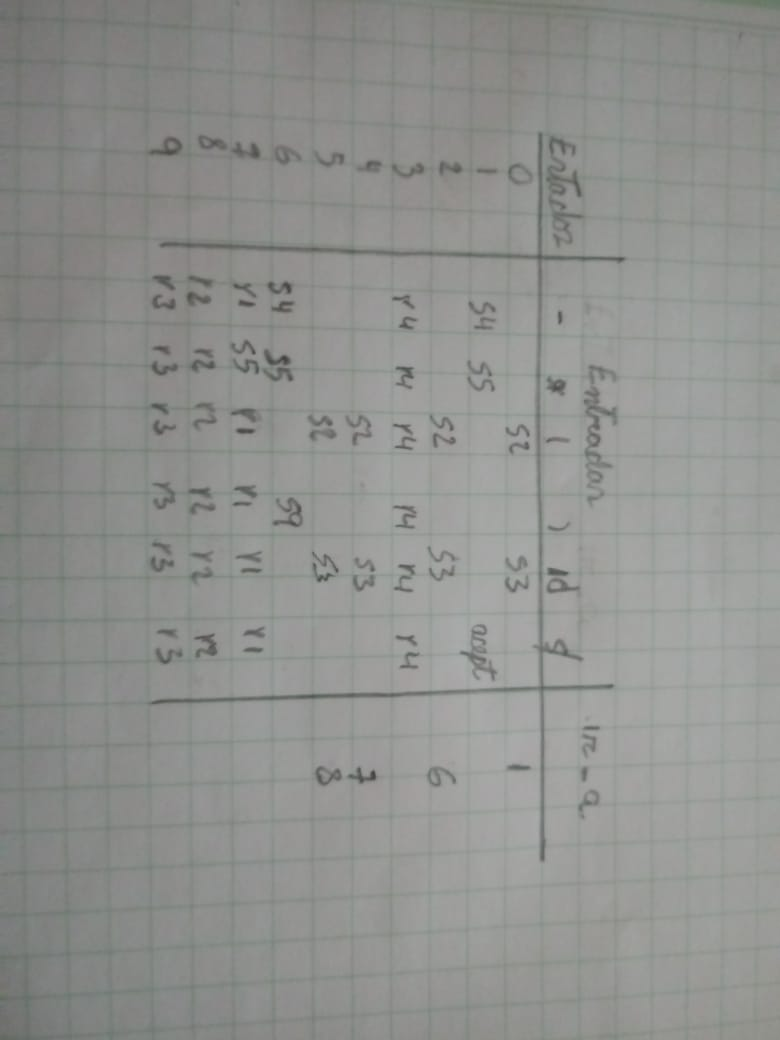 Entradas Ir-a
Estados - * ( ) id $
0 S2 S3 1
1 S4 S5 acept
2 S2 S3 6
3 r4 r4 r4 r4 r4 r4
4 S2 S3 7
5 S2 S3 8
6 S4 S5 S9
7 r1 S5 r1 r1 r1 r1
8 r2 r2 r2 r2 r2 r2
9 r3 r3 r3 r3 r3 r3